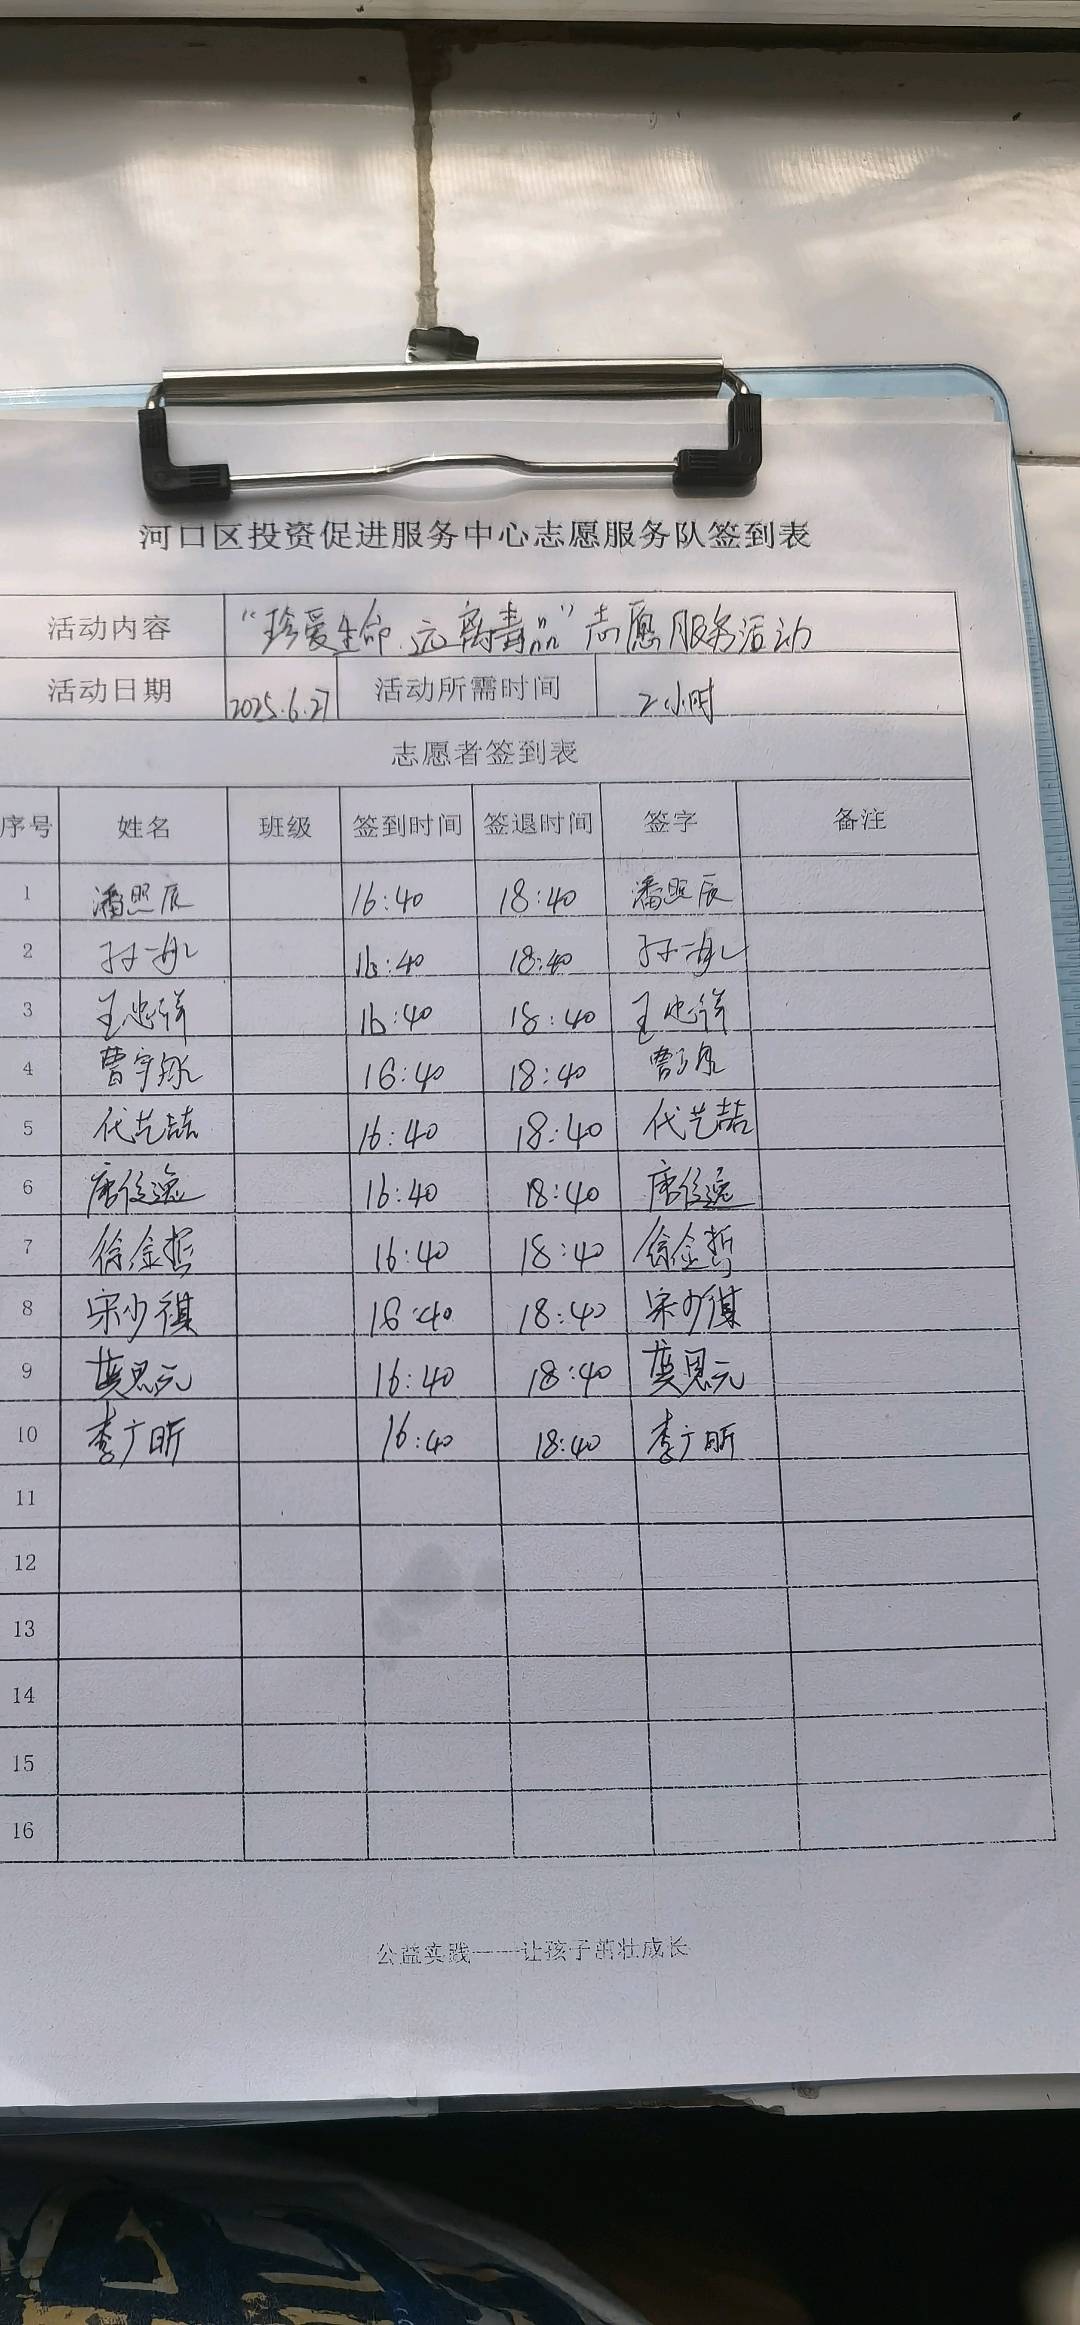 河口区投资促进服务中心志愿服务队签到表
活动内容 “珍爱生命.远离毒品”志愿服务活动
活动日期 2025.6.27 活动所需时间 2小时
志愿者签到表
序号 姓名 班级 签到时间 签退时间 签字 备注
1 潘照辰 16:40 18:40 潘照辰
2 孙一 16:40 18:40 孙一
3 王忠祥 16:40 18:40 王忠祥
4 曹宇 16:40 18:40 曹
5 代艺喆 16:40 18:40 代艺喆
6 唐俊逸 16:40 18:40 唐俊逸
7 徐金哲 16:40 18:40 徐金哲
8 宋少祺 16:40 18:40 宋少祺
9 思元 16:40 18:40 思元
10 李广昕 16:40 18:40 李广昕
11
12
13
14
15
16
公益实践——让孩子茁壮成长